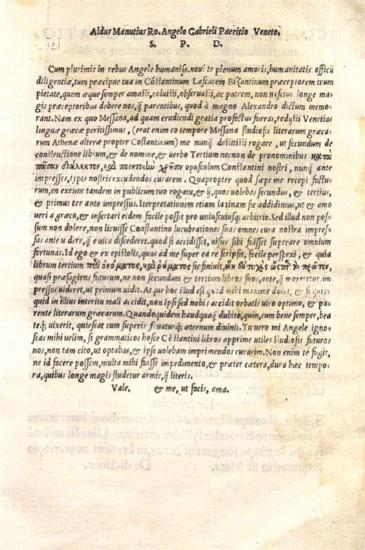 Aldus Manutius Ro. Angelo Gabrieli Patritio Veneto.
S. P. D.
Cum plurimis in rebus Angele humaniss. noui te plenum amoris, humanitatis officii
diligentiæ, tum præcipue tua in Cõstantinum Lascarem Bizantinum præceptorem tuum
pietate, quem æque semper amasti, coluisti, obseruasti, ac patrem, non nescius longe ma
gis præceptoribus debere nos, q̃ parentibus, quod à magno Alexandro dictum memo
rant. Nam ex quo Messana, ad quam erudiendi gratia profectus fueras, rediisti Venetias
linguæ græcæ peritissimus, (erat enim eo tempore Messana studiosis literarum græca-
rum Athenæ alteræ propter Cõstantinum) me nunq̃ destitisti rogare, ut secundum de
constructione librum, & de nomine, & uerbo Tertium necnon de pronominibus
opusculum Constantini nostri, nunq̃ ante
impresses, typis nostris excudendos curarem. Quapropter quod sæpe me recepi factu-
rum, en exeunt tandem in publicum tuo rogatu, &
ter ante impressus. Interpretationem etiam latinam fic addidimus, ut & amo
ueri a græco, & insertari eidem facile possit pro uniuscuiusq; arbitrio. Sed illud non pos-
sum non dolere, non licuisse Constantino lucubrationes suas omnes cura nostra impres-
sas ante u dere, q̃ e uita discederet. quod si accidisset, uisus sibi fuisset superare omnium
fortunas. Id ego & ex epistolis, quas ad me super ea re scripsit, facile perspexi, & quia
librum tertium
quasi præsagiens futurum, ne non secundum, & tertium libros suos, ante,
pressos uideret, ut primum uidit. At que hoc illud est quod mihi maxime dolet,
quid in illius interitu mali accidit, non ipsi sed nobis accidit orbatis uiro optimo, & pa
rente literarum græcarum. Quandoquidem haudquaq̃ dubito, quin, cum bene semper, bea
teq; uixerit, quiescat cum superis fruaturq; æternum diuinis. Tu uero mi Angele igno
scas mihi uelim, si grammaticos hosce Cõstantini libros apprime utiles studiosis futuros
nos, non tam cito, ut optabas, & ipse uolebam imprimendos curarim. Non enim te fugit,
ne id facere possem, multa mihi fuisse impedimento, & præter cætera, dura hæc tempo
ra, quibus longe magis studetur armis, q̃ literis.
Vale. & me, ut facis, ama.